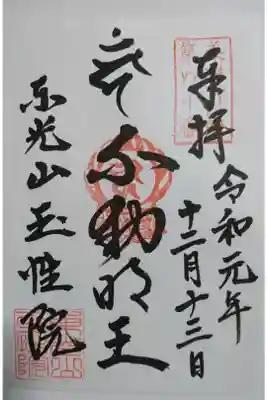 奉拝
令和元年
十二月十三日
不動明王
東光山玉性院